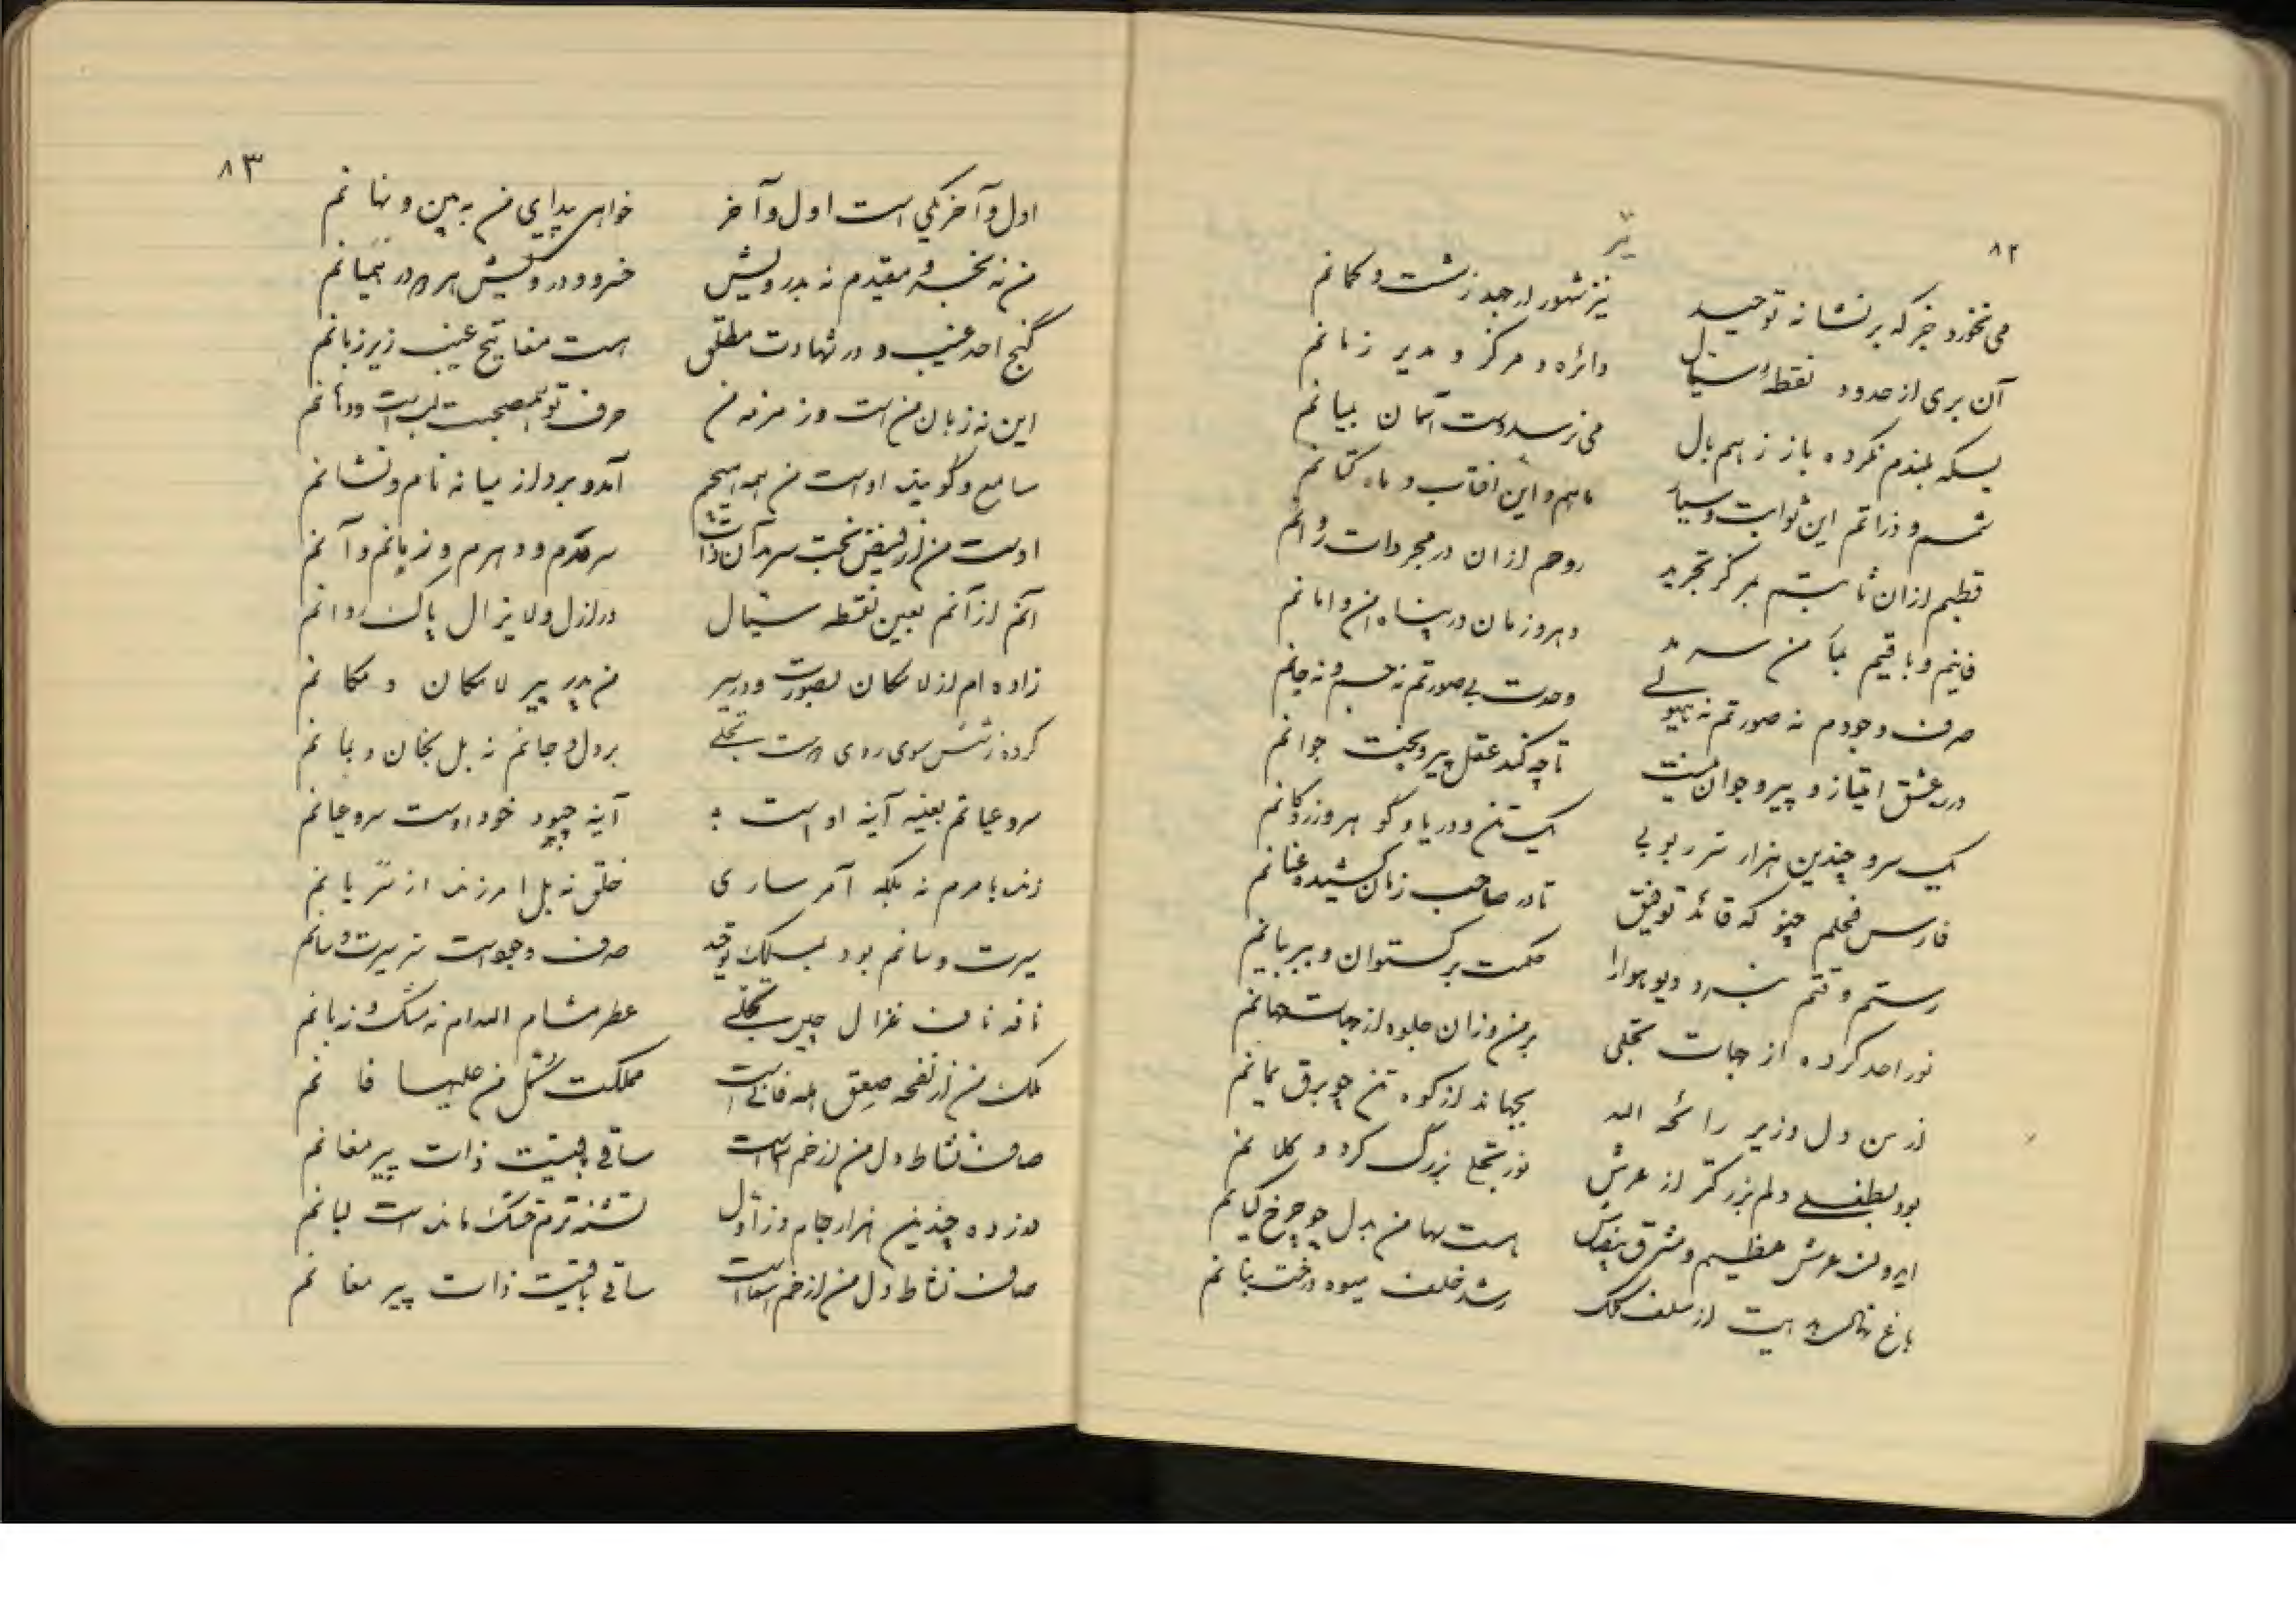 ۸۲
می نخورد جز که بر نشانه توحید تیر شهود از جهد ز شست و کمانم
آن بری از حدود نقطه سیال دائره و مرکز و مدیر زمانم
بسکه بلندم نکرده باز ز هم بال می نرسد دست آسمان بمیانم
شمس و ذراتم این ثوابت و سیار ماهم و این افتاب و ماه کتانم
قطبم از ان ثابتم بمرکز تجرید روحم از ان در مجردات روانم
فانیم و باقیم بنا من سرمد دهر و زمان در پناه امن و امانم
صرف وجودم نه صورتم نه هیولی وحدت بی صورتم نه جسم و نه جانم
در ره عشق امتیاز و پیر و جوان نیست تا چه کند عقل پیر و بخت جوانم
یک سر و چندین هزار سر ربوبی یک تن و دریا و گوهر و زر و کانم
فارس فحلم چنو که قائد توفیق تا در صاحب زمان کشیده عنانم
رستم وقتم نبرد دیو هوا را حکمت برگستوان و ببر بیانم
نور احد کرده از جهات تجلی بر من و زان جلوه از جهات جهانم
از من دل وزیر رائحه الله بجهاند از کوه تن چو برق یمانم
بود بطفلی دلم بزرگتر از عرش نور تجلی بزرگ کرد و کلانم
ایروان عرش عظیم و مشرق بیضاست هست سها من بدل چو چرخ کیانم
باغ نهالست از سلف کلک رشد خلف میوه درخت بنانم
۸۳
اول و آخر یکی است اول و آخر خواهی پیدای من به بین و نهانم
من نه بخسرو مقیدم نه بدرویش خسرو و درویش هر دو در همیانم
گنج احد غیب و در شهادت مطلق هست مفاتیح غیب زیر زبانم
این نه زبان من است و زمزمه من حرف تو هم صحبت لب است و دهانم
سامع و گوینده اوست من همه هیچم آمد و برد از میانه نام و نشانم
اوست من از فیض بخت سرمد آن ذات سرمدم و دهرم و زمانم و آنم
آنم از آنم بعین نقطه سیال در ازل و لایزال پاک روانم
زاده ام از لامکان بصورت و در سیر من پدر پیر لامکان و مکانم
کرده ز شش سوی روی دوست تجلی بر دل و جانم نه بل بخان و بمانم
سر و عیانم بعینه آینه اوست آینه چبود خود اوست سر و عیانم
زنده بامرم نه بلکه آمر ساری خلق نه بل امر زنده از سریانم
سیرت و سانم بود بمسلک توحید صرف وجودست نه سیرت و سانم
نافه ناف غزال جیب تجلی عطر مشام الله ام نه مشک و نه بانم
ملک من از نفحه صعق همه فانی است مملکت کل من علیها فانم
صاف نشاط دل من از خم اسماست ساقی باقیست ذات پیر مغانم
در زده چندین هزار جام و ز اول تشنه ترم خشک مانده است لبانم
صاف نشاط دل من از خم اسماست ساقی باقیست ذات پیر مغانم